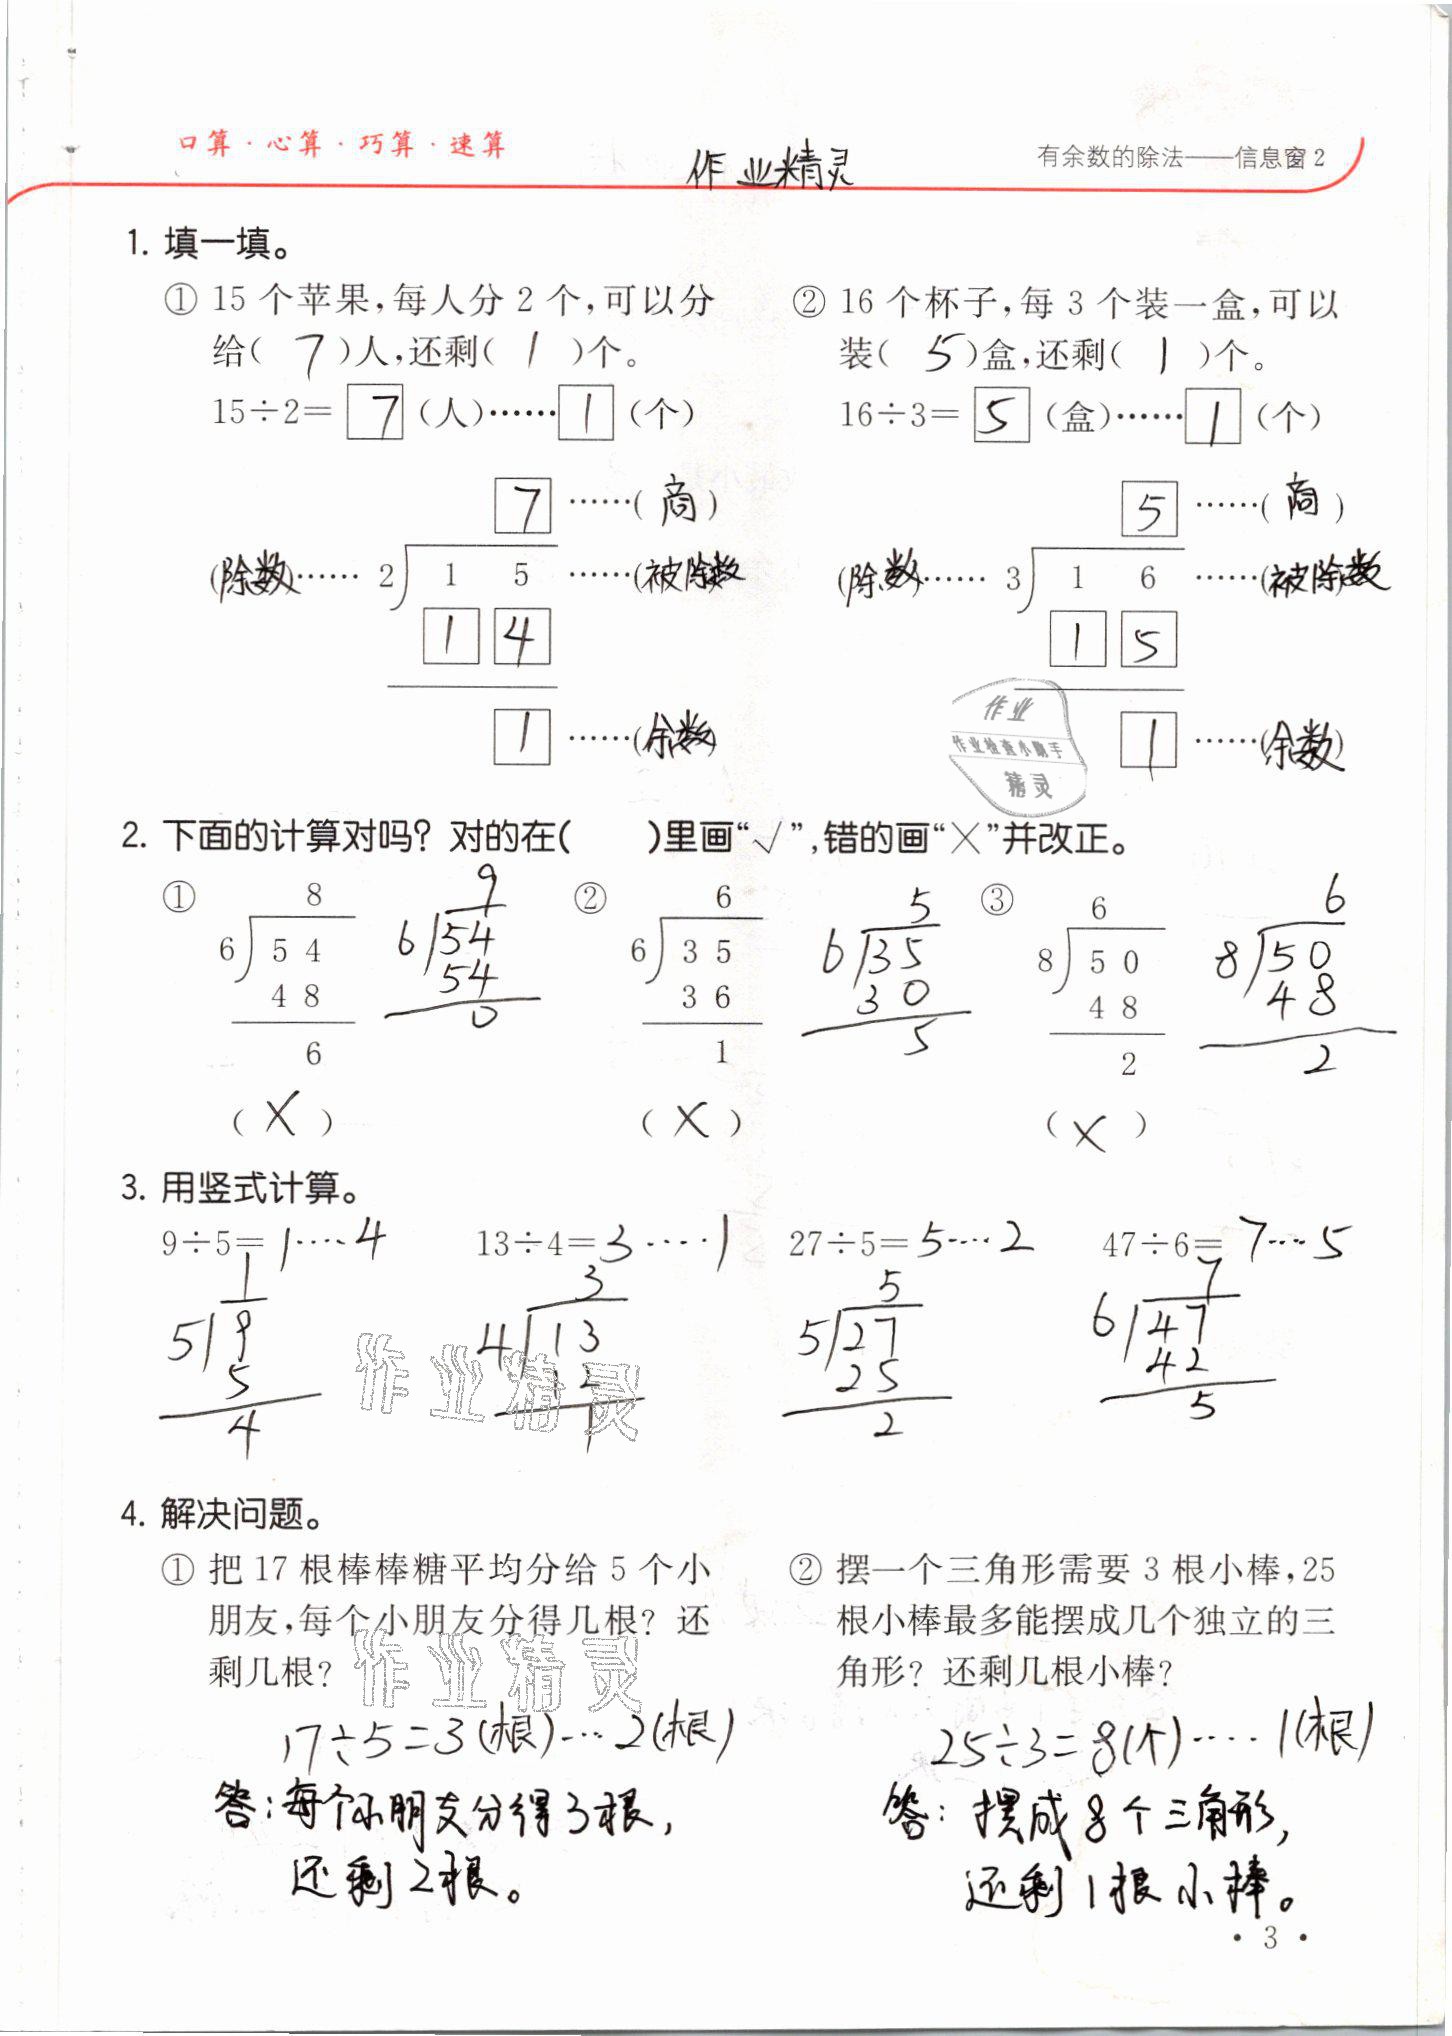 口算·心算·巧算·速算
作业精灵
有余数的除法——信息窗2
1. 填一填。
① 15个苹果,每人分2个,可以分
给( 7 )人,还剩( 1 )个。
15÷2= 7 (人)…… 1 (个)
7 ……( 商 )
(除数)…… 2 1 5 ……(被除数
1 4
1 ……(余数)
② 16个杯子,每3个装一盒,可以
装( 5 )盒,还剩( 1 )个。
16÷3= 5 (盒)…… 1 (个)
5 ……( 商 )
(除数)…… 3 1 6 ……(被除数
1 5
1 ……(余数)
作业
作业检查小助手
精灵
2. 下面的计算对吗? 对的在( )里画“√”,错的画“×”并改正。
① 8
6 5 4
4 8
6
( × )
9
6 54
54
0
② 6
6 3 5
3 6
1
( × )
5
6 35
30
5
③ 6
8 5 0
4 8
2
( × )
6
8 50
48
2
3. 用竖式计算。
9÷5= 1····4
1
5 9
5
4
13÷4= 3····1
3
4 13
12
1
27÷5= 5····2
5
5 27
25
2
47÷6= 7····5
7
6 47
42
5
作业精灵
4. 解决问题。
① 把17根棒棒糖平均分给5个小
朋友,每个小朋友分得几根? 还
剩几根?
作业精灵
17÷5=3(根)····2(根)
答:每个小朋友分得3根,
还剩2根。
② 摆一个三角形需要3根小棒,25
根小棒最多能摆成几个独立的三
角形? 还剩几根小棒?
25÷3=8(个)····1(根)
答: 摆成8个三角形,
还剩1根小棒。
· 3 ·